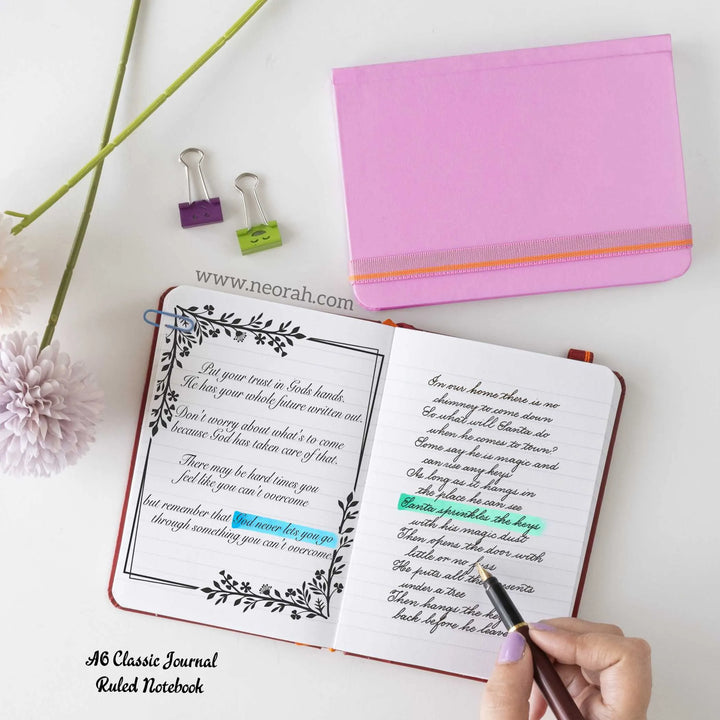 www.neorah.com
Put your trust in Gods hands.
He has your whole future written out.
Don't worry about what's to come
because God has taken care of that.
There may be hard times you
feel like you can't overcome
but remember that God never lets you go
through something you can't overcome
In our home there is no
chimney to come down
So what will Santa do
when he comes to town?
Some say he is magic and
can use any keys
As long as it hangs in
the place he can see
Santa sprinkles the keys
with his magic dust
Then opens the door with
little or no fuss
He puts all the presents
under a tree
Then hangs the key
back before he leaves
A6 Classic Journal
Ruled Notebook